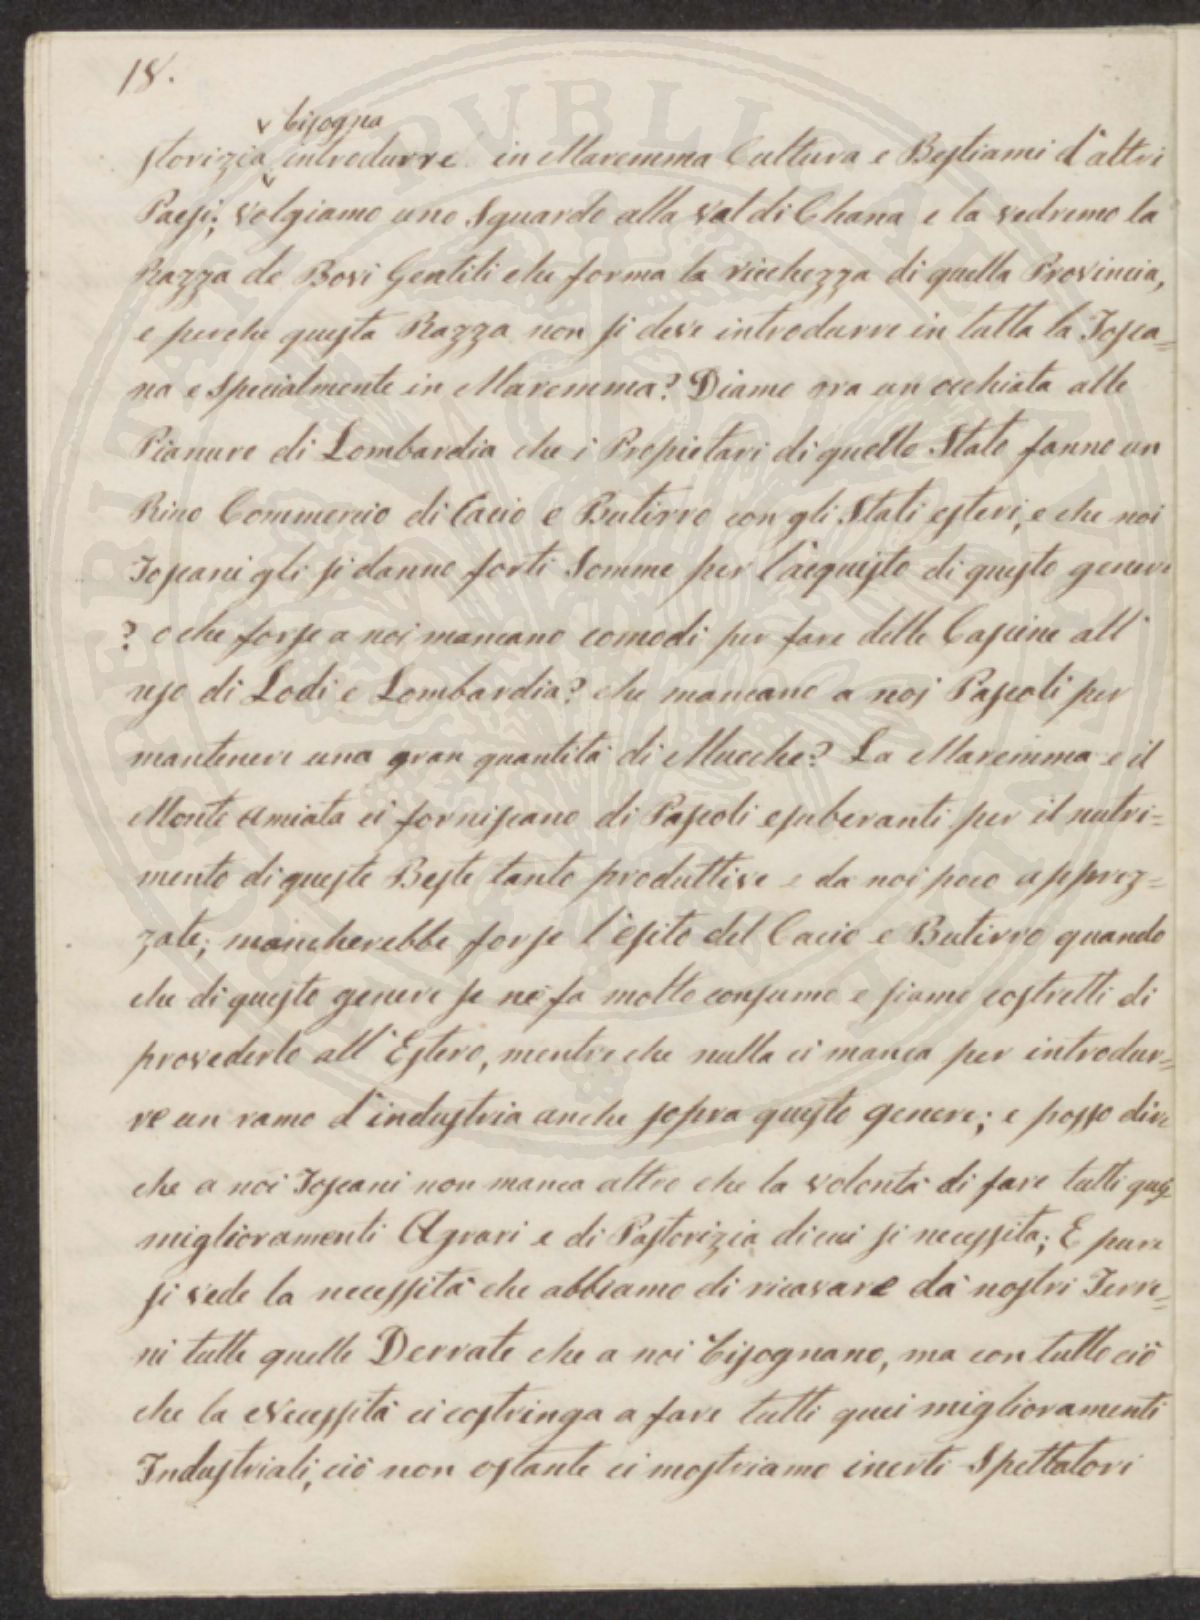 18.
bisogna
storizia introdurre in Maremma Cultura e Bestiami d'altri
Paesi; volgiamo uno Sguardo alla Val di Chana e la vedremo la
Razza de Bovi Gentili che forma la ricchezza di quella Provincia,
e perche questa Razza non si deve introdurre in tutta la Tosca=
na e specialmente in Maremma? Diamo ora un occhiata alle
Pianure di Lombardia che i Propietari di quello Stato fanno un
Rino Commercio di Cacio e Butirro con gli Stati esteri, e che noi
Toscani gli si danno forti Somme per l'acquisto di questo genere
? o che forse a noi mancano comodi per fare delle Cascine all'
uso di Lodi e Lombardia? che mancano a noi Pascoli per
mantenere una gran quantità di Mucche? La Maremma e il
Monte Amiata ci forniscano di Pascoli esuberanti per il nutri=
mento di queste Beste tanto produttive e da noi poco apprez=
zate; mancherebbe forse l'esito del Cacio e Butirro quando
che di questo genere se ne fa molto consumo e siamo costretti di
provederlo all'Estero, mentre che nulla ci manca per introdur=
re un ramo d'industria anche sopra questo genere; e posso dire
che a noi Toscani non manca altro che la volontà di fare tutti quei
miglioramenti Agrari e di Pastorizia di cui si necessita; E pure
si vede la necessità che abbiamo di ricavare da nostri Terre=
ni tutte quelle Derrate che a noi bisognano, ma con tutto ciò
che la Necessità ci costringa a fare tutti quei miglioramenti
Industriali, ciò non ostante ci mostriamo inerti Spettatori
PUBLIC